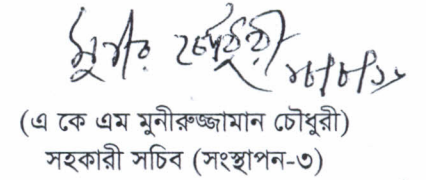 মুনীর চৌধুরী
(এ কে এম মুনীরুজ্জামান চৌধুরী)
সহকারী সচিব (সংস্থাপন-৩)